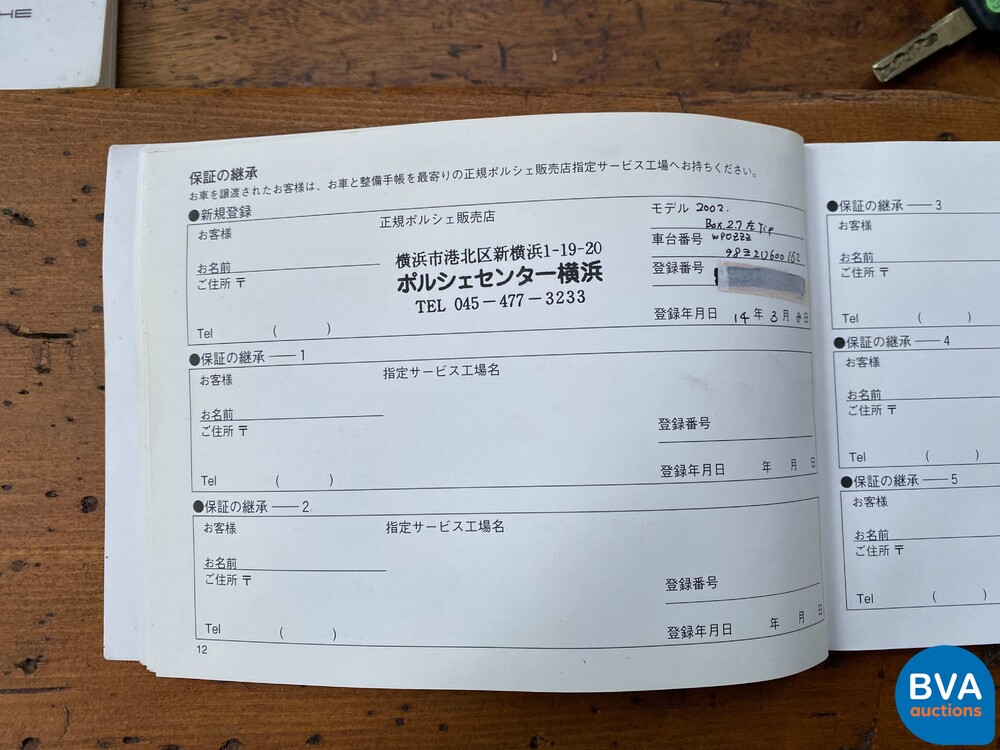 保証の継承
お車を譲渡されたお客様は、お車と整備手帳を最寄りの正規ポルシェ販売店指定サービス工場へお持ちください。
●新規登録
お客様
お名前
ご住所 〒
Tel ( )
正規ポルシェ販売店
横浜市港北区新横浜1-19-20
ポルシェセンター横浜
TEL 045-477-3233
モデル 2002.
Box 2.7 左 Tip
車台番号 WP0ZZZ
98Z2U600162
登録番号
登録年月日 14年 3月 日
●保証の継承 — 1
お客様
お名前
ご住所 〒
Tel ( )
指定サービス工場名
登録番号
登録年月日 年 月 日
●保証の継承 — 2
お客様
お名前
ご住所 〒
Tel ( )
指定サービス工場名
登録番号
登録年月日 年 月 日
12
●保証の継承 — 3
お客様
お名前
ご住所 〒
Tel ( )
●保証の継承 — 4
お客様
お名前
ご住所 〒
Tel ( )
●保証の継承 — 5
お客様
お名前
ご住所 〒
Tel ( )
BVA
auctions